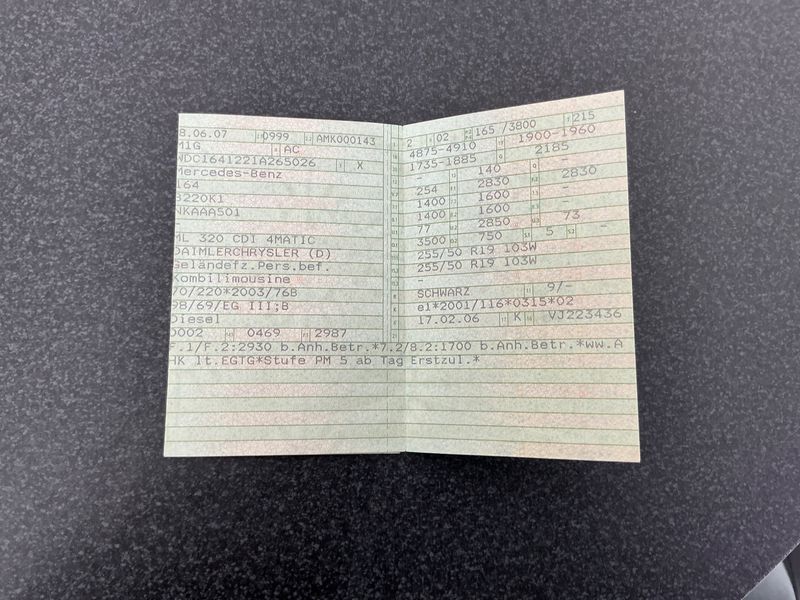 8.06.07 0999 AMK000143
M1G AC
WDC1641221A265026 X
Mercedes-Benz
164
B220K1
NKAAA501
-
ML 320 CDI 4MATIC
DAIMLERCHRYSLER (D)
Geländefz.Pers.bef.
Kombilimousine
70/220*2003/76B
98/69/EG III;B
Diesel
0002 0469 2987
2 02 165 /3800 215
4875-4910 1900-1960
1735-1885 2185
- 140 -
254 2830 2830
1400 1600 -
1400 1600 -
77 2850 73
3500 750 5 -
255/50 R19 103W
255/50 R19 103W
-
SCHWARZ 9/-
e1*2001/116*0315*02
17.02.06 K VJ223436
F.1/F.2:2930 b.Anh.Betr.*7.2/8.2:1700 b.Anh.Betr.*ww.A
HK lt.EGTG*Stufe PM 5 ab Tag Erstzul.*